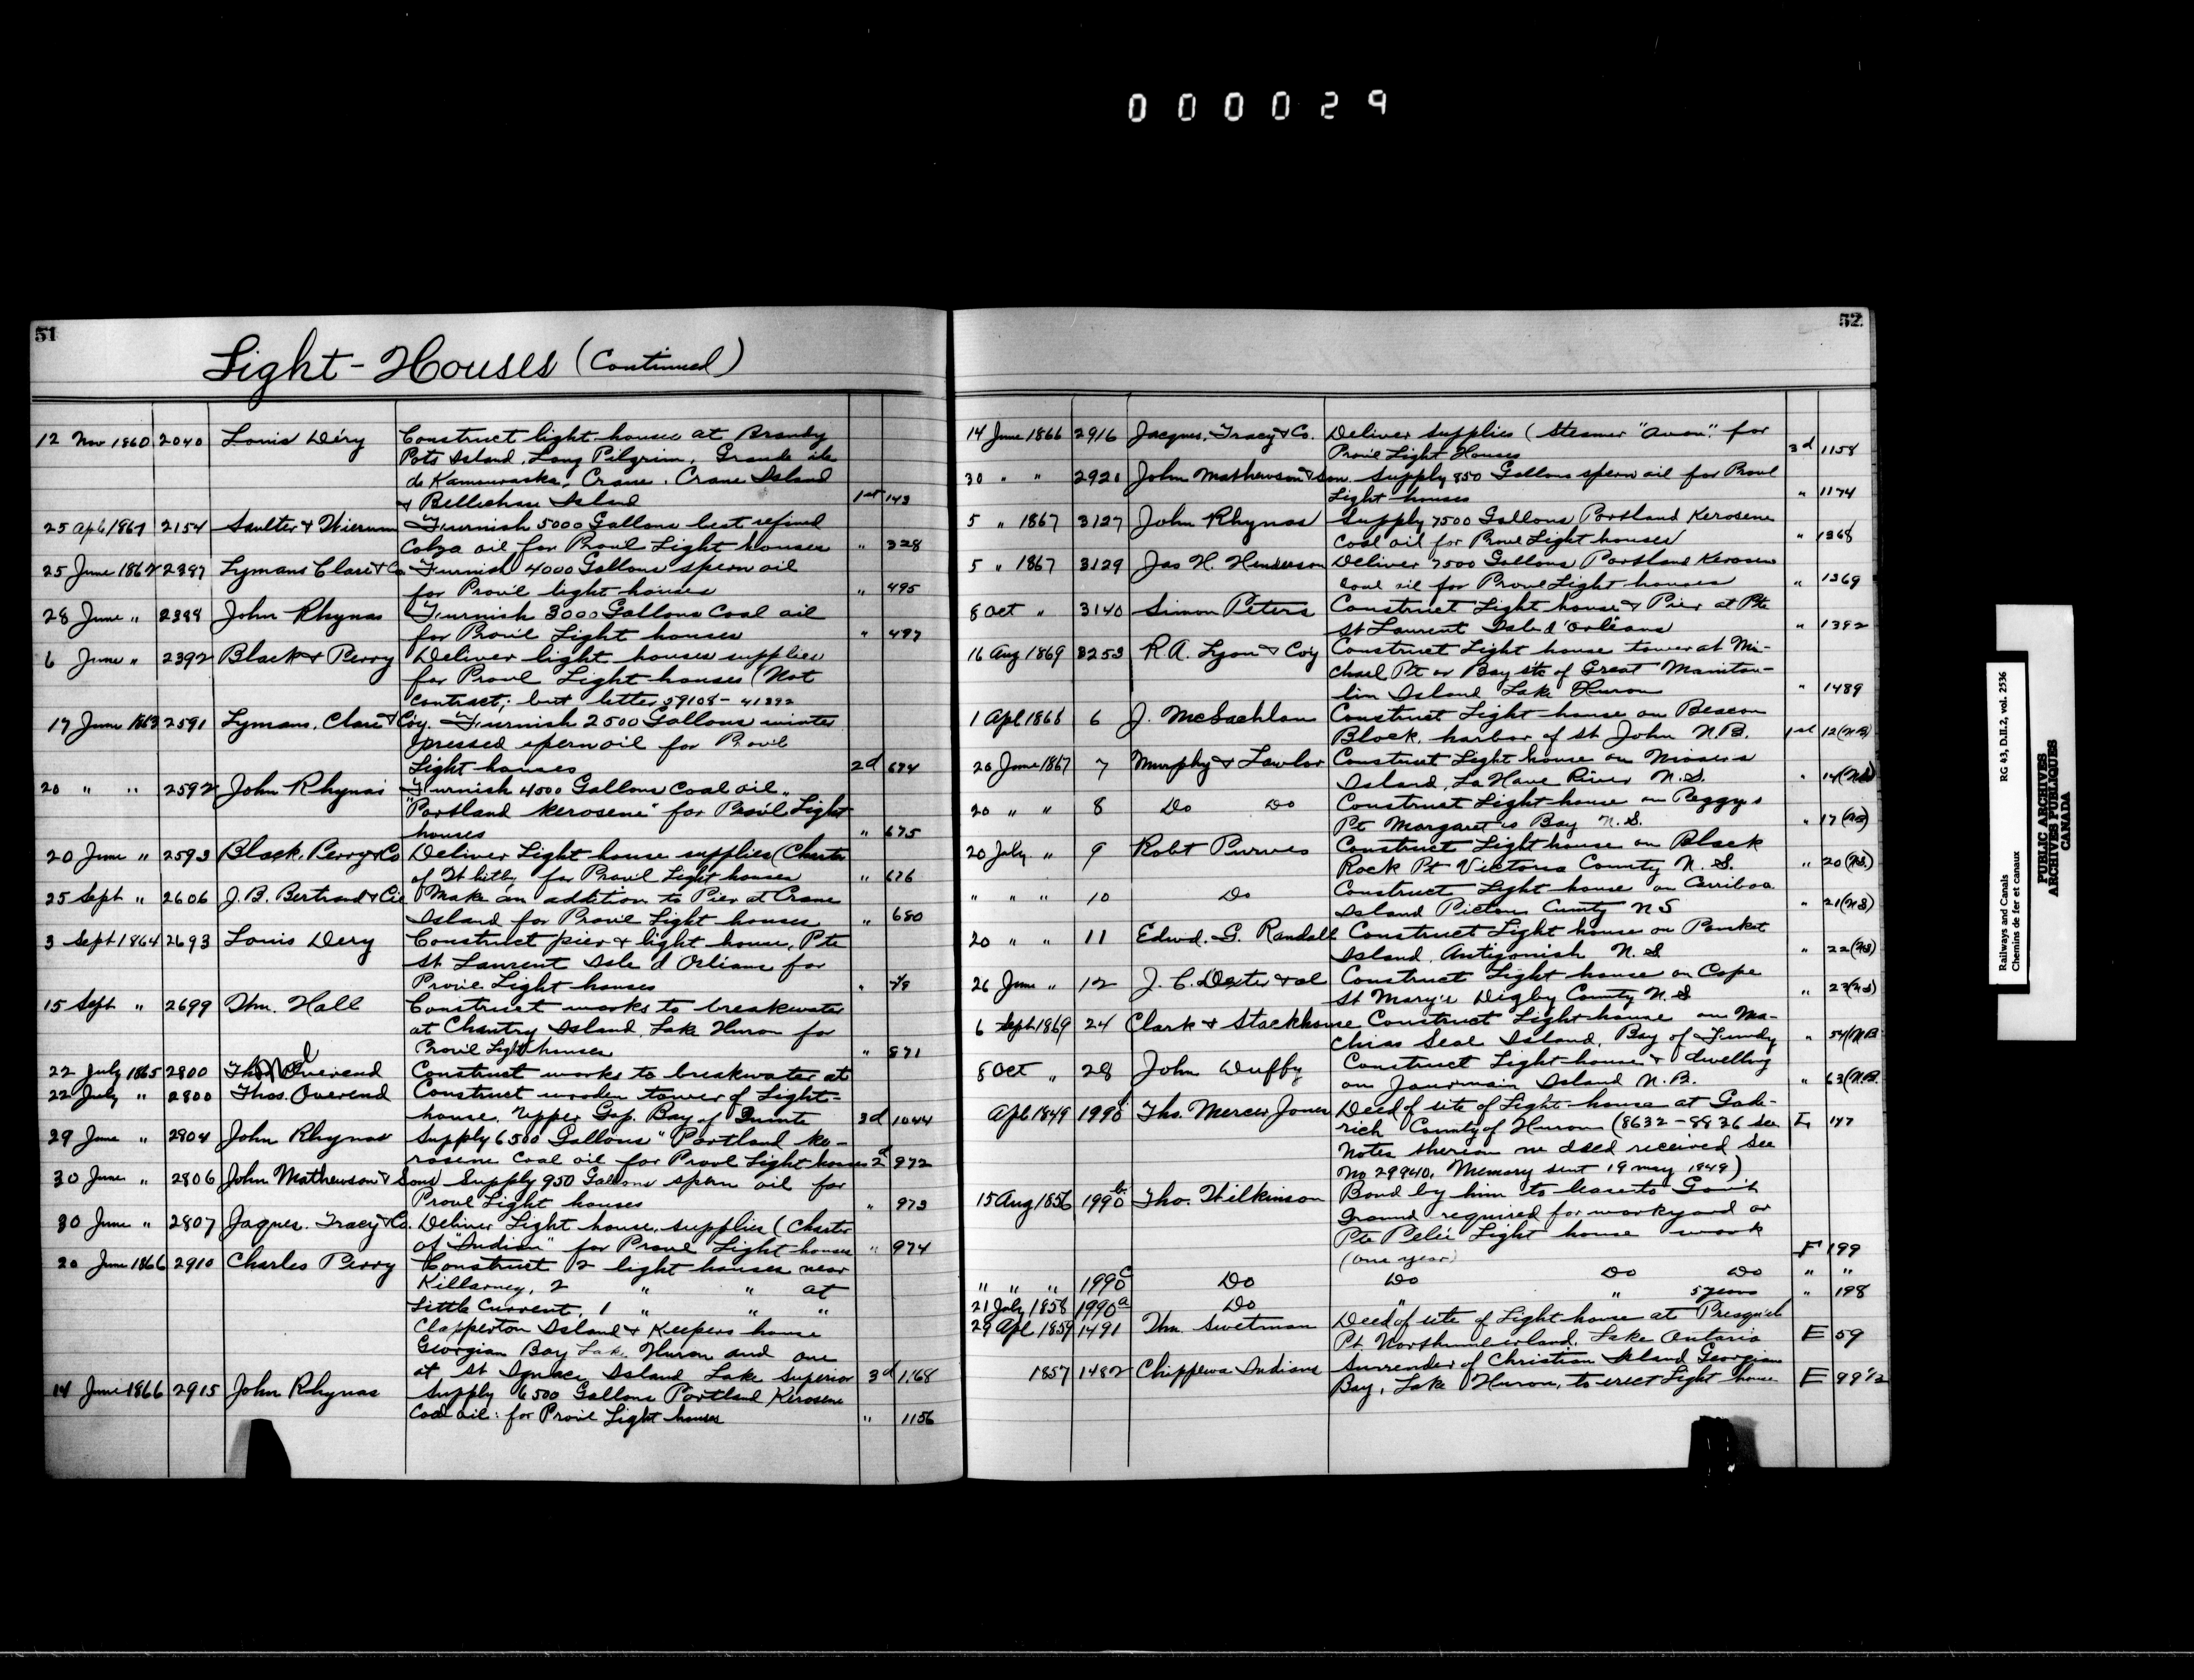 000029
51
Light-Houses (Continued)
12 Nov 1860 2040 Louis Déry Construct light houses at Brandy
Pots Island, Long Pilgrim, Grande ile
de Kamouraska, Crane. Crane Island
& Bellechase Island 1st 143
25 Apl 1861 2154 Saulter & Furnish 5000 Gallons best refined
Colza oil for Provl Light houses " 328
25 June 1862 2387 Lymans Clare & Co Furnish 4000 Gallons sperm oil
for Provil light houses " 495
28 June " 2388 John Rhynas Furnish 3000 Gallons Coal oil
for Provil Light houses " 497
6 June " 2392 Black & Perry Deliver light houses supplies
for Provl Light houses (Not
contract; but letter 59108 - 41392
17 June 1863 2591 Lymans, Clare & Coy. Furnish 2500 Gallons winter
pressed sperm oil for Provil
Light houses 2d 674
20 " " 2592 John Rhynas Furnish 4500 Gallons Coal oil,
"Portland kerosene" for Provil Light
houses " 675
20 June " 2593 Black, Perry & Co Deliver Light house supplies (Charter
of Whitby for Provil Light houses " 676
25 Sept " 2606 J. B. Bertrand & Cie Make an addition to Pier at Crane
Island for Provil Light houses " 680
3 Sept 1864 2693 Louis Dery Construct pier & light house, Pte
St Laurent Isle d'Orleans for
Provil Light houses "
15 Sept " 2699 Wm. Hall Construct works to breakwater
at Chantry Island, Lake Huron for
Provil Light houses " 871
22 July 1865 2800 Overend Construct works to breakwater at
22 July " 2800 Thos. Overend Construct wooden tower of Light-
house. Upper Gap. Bay of Quinte 3d 1044
29 June " 2804 John Rhynas Supply 6500 Gallons "Portland ke-
rosene coal oil for Provl Light houses 2d 972
30 June " 2806 John Mathewson & Sons Supply 950 Gallons sperm oil for
Provl Light houses " 973
30 June " 2807 Jaques. Tracy & Co. Deliver Light house supplies (Charter
of "Indian" for Provl Light houses " 974
20 June 1866 2910 Charles Perry Construct 2 light houses near
Killarney, 2 " " at
Little Current, 1 " " "
Clapperton Island & Keepers house
Georgian Bay Lake Huron and one
at St Ignace Island Lake Superior 3d 1168
14 June 1866 2915 John Rhynas Supply 6500 Gallons Portland Kerosene
Coal oil: for Provil Light houses " 1156
52
14 June 1866 2916 Jacques, Tracy & Co. Deliver supplies (Steamer "Avon." for
Provil Light Houses 3d 1158
30 " " 2921 John Mathewson & Son Supply 850 Gallons sperm oil for Provl
Light houses " 1174
5 " 1867 3127 John Rhynas Supply 7500 Gallons Portland Kerosene
Coal oil for Provl Light houses " 1368
5 " 1867 3129 Jas H. Henderson Deliver 7500 Gallons Portland Kerosene
coal oil for Provl Light houses " 1369
8 Oct " 3140 Simon Peters Construct Light house & Pier at Pte
St Laurent Isle d'Orleans " 1392
16 Aug 1869 3253 R. A. Lyon & Coy Construct Light house tower at Mi-
chael Pt or Bay str of Great Manitou-
lin Island Lake Huron " 1489
1 Apl 1866 6 J. McLachlan Construct Light house on Beacon
Block, harbor of St John N.B. 1st 12(NB)
26 June 1867 7 Murphy & Lawlor Construct Light house on Mosers
Island, La Have River N.S. " 14(NS)
20 " " 8 Do Do Construct Light house on Peggys
Pt Margaret's Bay N.S. " 17(NS)
20 July " 9 Robt Purves Construct Lighthouse on Black
Rock Pt Victoria County N.S. " 20(NS)
" " " 10 Do Construct Light house on Carriboo
Island Pictou County NS " 21(NS)
20 " " 11 Edwd. G. Randall Construct Light house on Pomket
Island, Antigonish N.S " 22(NS)
26 June " 12 J. C. Dexter & al Construct Light house on Cape
St Mary's Digby County N.S " 23(NS)
6 Sept 1869 24 Clark & Stackhouse Construct Light-house on Ma-
chias Seal Island, Bay of Fundy " 54(NB
8 Oct " 28 John Duffy Construct Light-house & dwelling
on Jourmain Island N.B. " 63(N.B.
Apl 1849 1990 Tho. Mercer Jones Deed of site of Light-house at Gode-
rich County of Huron (8632 - 8836 see L 147
Notes thereon no deed received See
No 29940. Memory sent 19 may 1849)
15 Aug 1856 1990b Tho. Wilkinson Bond by him to lease to Gov't
Ground required for workyard on
Pte Pelée Light house work
(one year) F 199
" " " 1990c Do Do Do Do " "
21 July 1858 1990a Do " " 5 years " 198
29 Apl 1859 1491 Wm. Swetman Deed of site of Light-house at Presqu'ile
Pt. Northumberland. Lake Ontario E 59
1857 1482 Chippewa Indians Surrender of Christian Island Georgian
Bay, Lake Huron, to erect Light house E 99 1/2
Railways and Canals RG 43, D.II.2, vol. 2536
Chemins de fer et canaux
PUBLIC ARCHIVES
ARCHIVES PUBLIQUES
CANADA